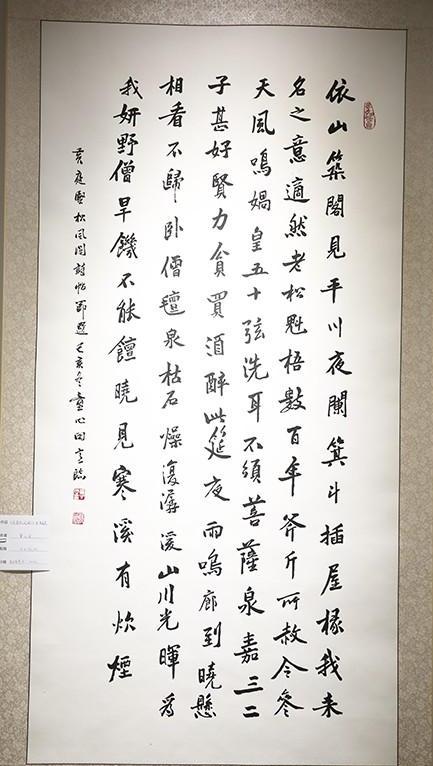 依山築閣見平川夜闌箕斗插屋椽我来
名之意適然老松魁梧數百年斧斤所赦今參
天風鳴媧皇五十弦洗耳不須菩薩泉嘉三二
子甚好賢力貧買酒醉此筵夜雨鳴廊到曉懸
相看不歸卧僧氊泉枯石燥復潺湲山川光暉為
我妍野僧旱饑不能饘曉見寒溪有炊煙
黄庭堅松风阁詩帖節選己亥冬臨